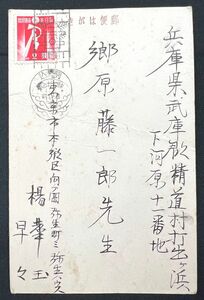 郵便はがき
兵庫県武庫郡精道村打出ヶ浜
下河原十一番地
郷原藤一郎先生
東京市本郷区向ヶ岡弥生町三
楊華玉
早々